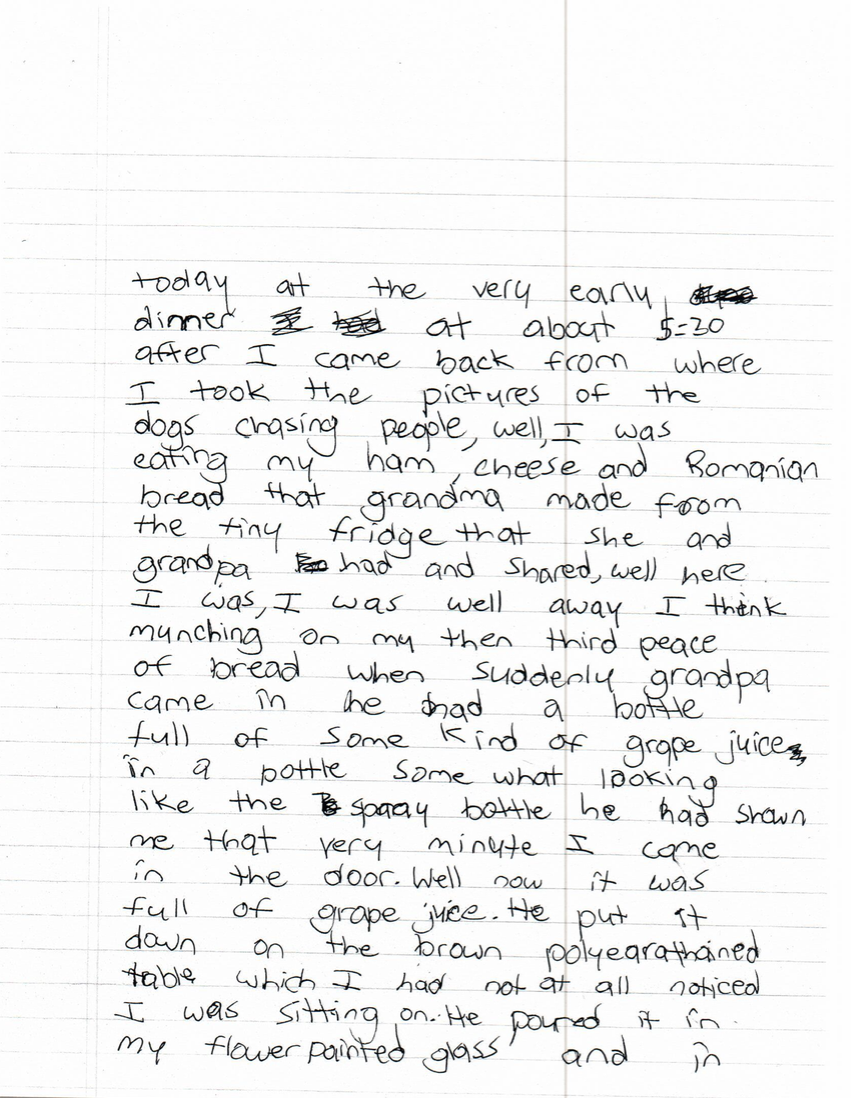 today at the very early
dinner at about 5=30
after I came back from where
I took the pictures of the
dogs chasing people, well, I was
eating my ham, cheese and Romanian
bread that grandma made from
the tiny fridge that she and
grandpa had and shared, well here
I was, I was well away I think
munching on my then third peace
of bread when suddenly grandpa
came in he had a bottle
full of some kind of grape juice,
in a bottle some what looking
like the spaay bottle he had shown
me that very minute I came
in the door. Well now it was
full of grape juice. He put it
down on the brown polyearathained
table which I had not at all noticed
I was sitting on. He poured it in
my flower painted glass and in